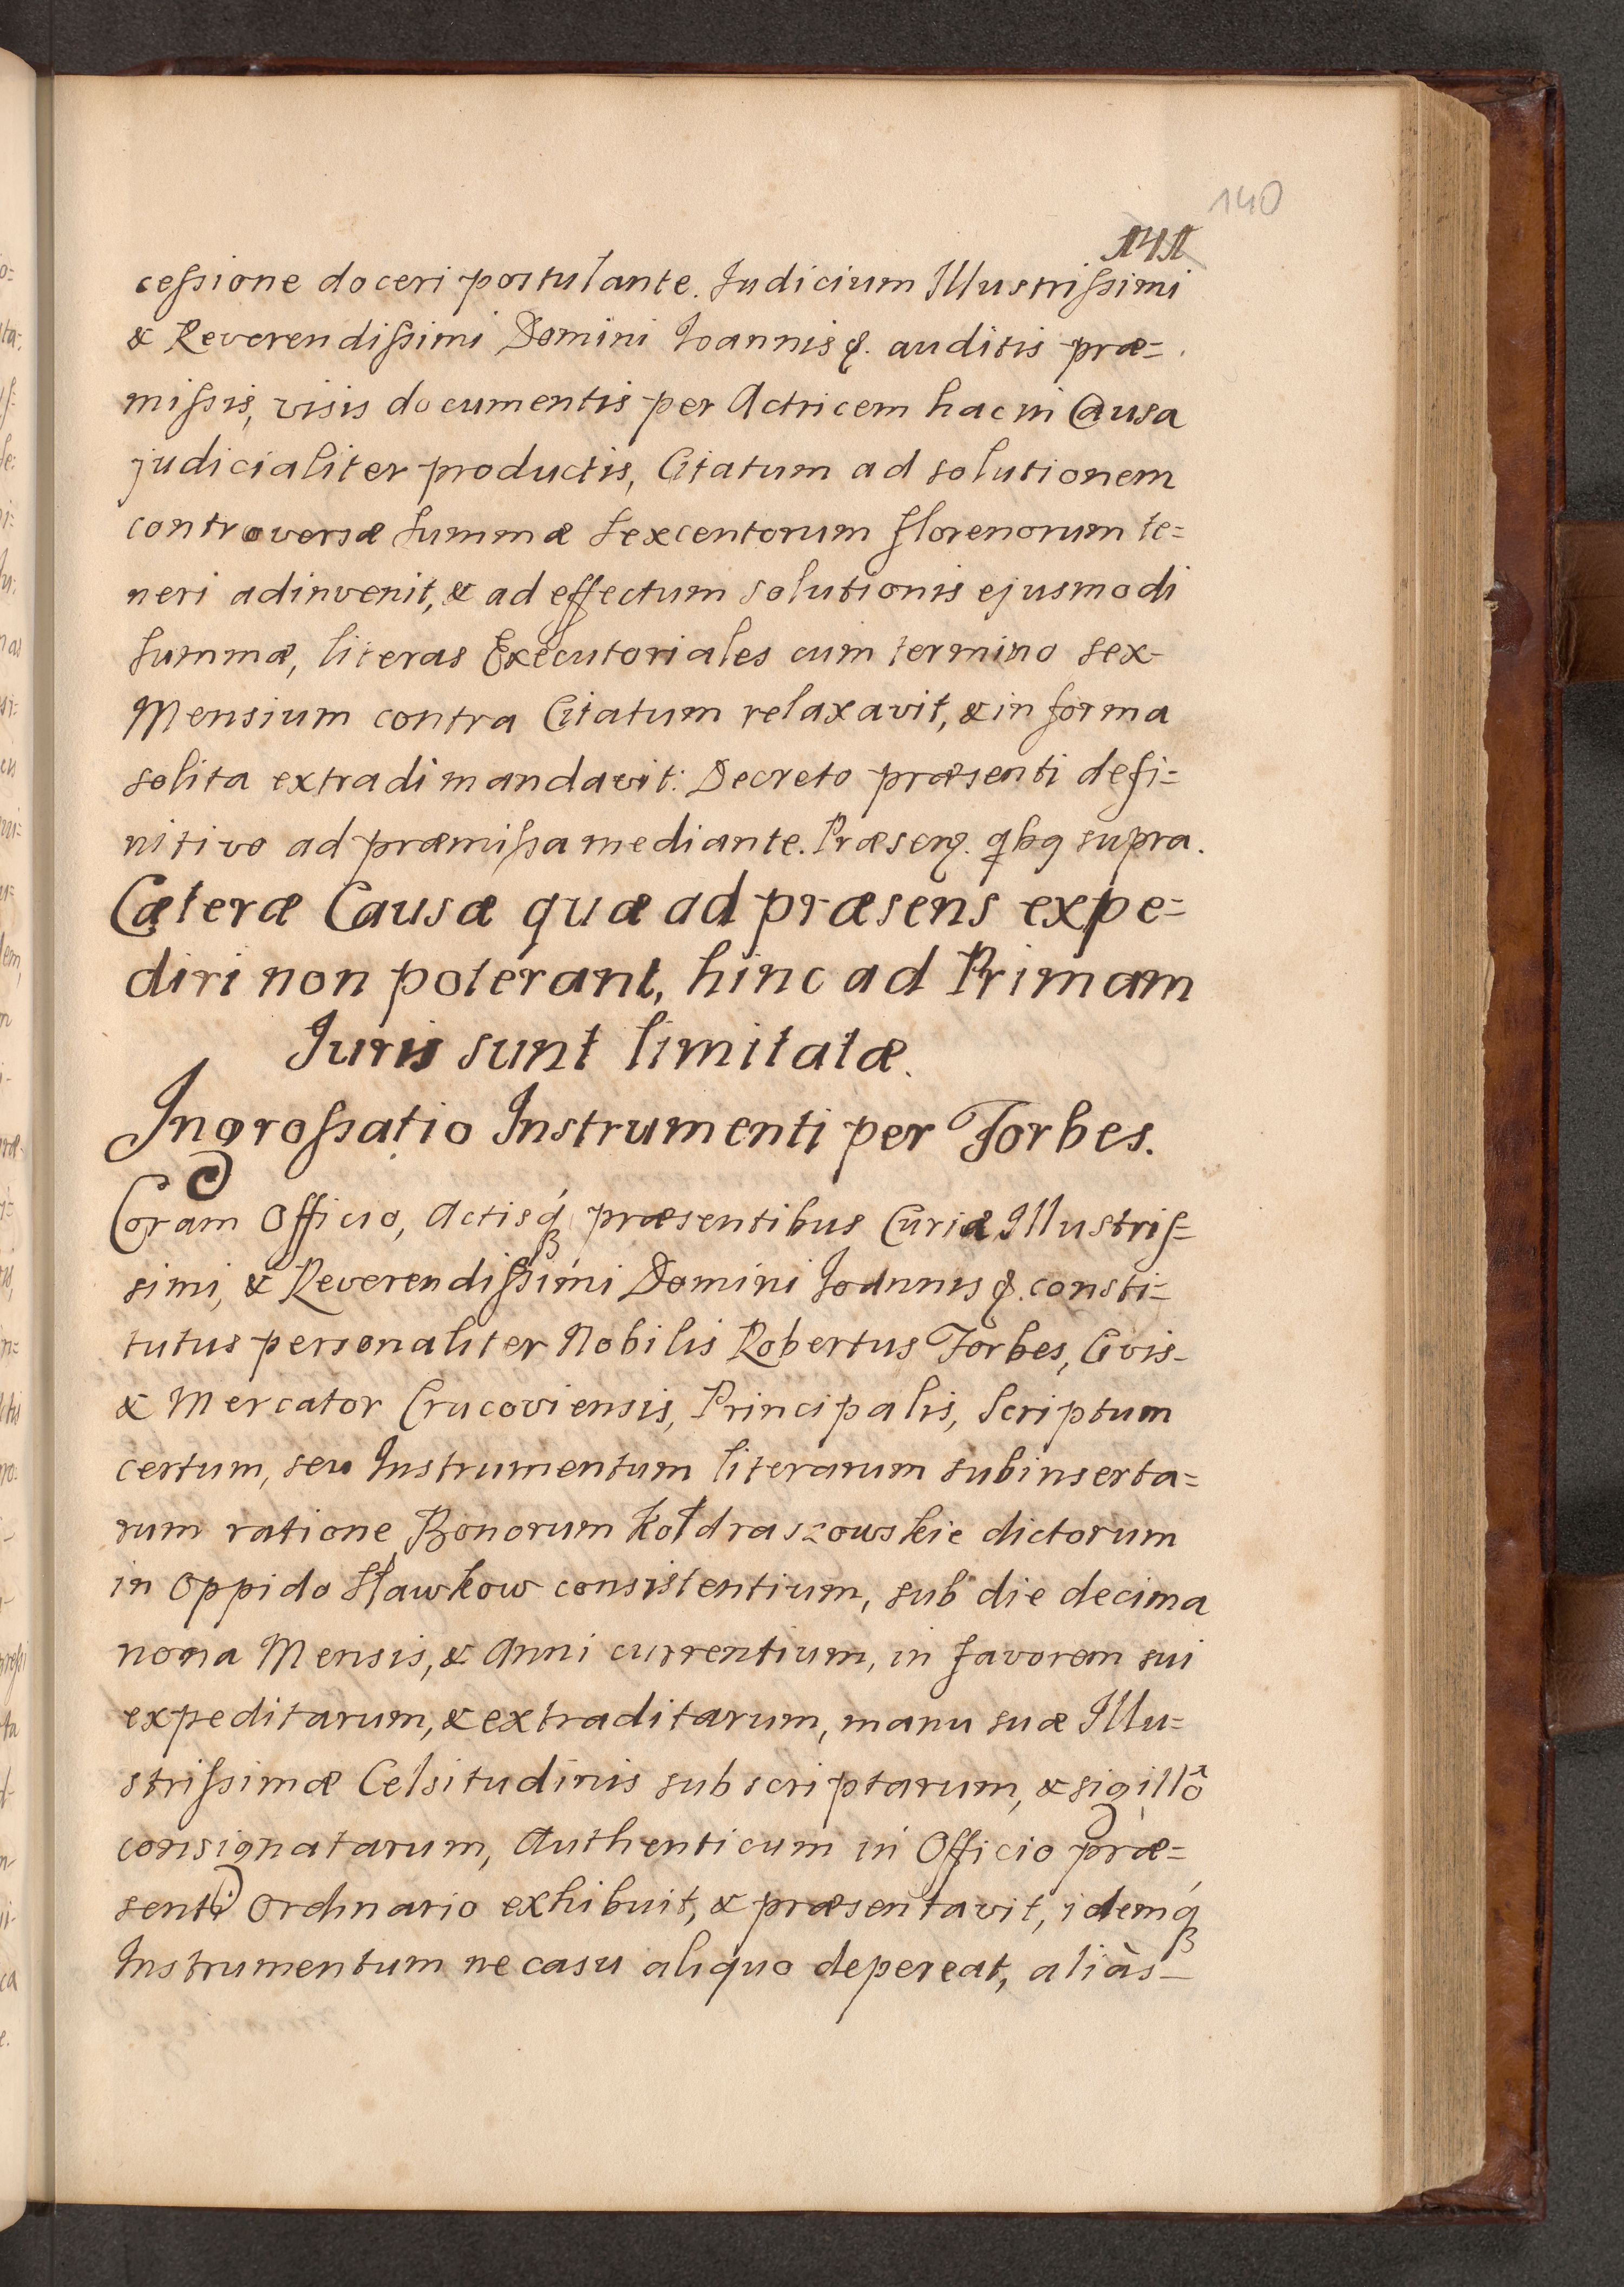 140
141
ceſsione doceri postulante. Judicium Illustriſsimi
& Reverendiſsimi Domini Joannis &. auditis præ=
miſsis, visis documentis per Actricem hac in Causa
judicialiter productis, Citatum ad solutionem
controversæ summæ sexcentorum florenorum te=
neri adinvenit, & ad effectum solutionis ejusmodi
summæ, literas Executoriales cum termino sex
Mensium contra Citatum relaxavit, & in forma
solita extradi mandavit: Decreto præsenti defi=
nitivo ad præmiſsa mediante. Præsen. qbq supra.
Cæteræ Causæ quæ ad præsens expe=
diri non poterant, hinc ad Primam
Juris sunt limitatæ.
Ingroſsatio Instrumenti per Forbes.
Coram Officio, Actisq́ præsentibus Curiæ Illustriſ=
simi, & Reverendiſsimi Domini Joannis &. consti=
tutus personaliter Nobilis Robertus Forbes, Civis
& Mercator Cracoviensis, Principalis, Scriptum
certum, seu Instrumentum literarum subinserta=
rum ratione Bonorum Kołdraszowskie dictorum
in Oppido Sławkow consistentium, sub die decima
nona Mensis, & Anni currentium, in favorem sui
expeditarum, & extraditarum, manu suæ Illu=
striſsimæ Celsitudinis subscriptarum, & sigillô
consignatarum, Authenticum in Officio præ=
senti Ordinario exhibuit, & præsentavit, idemq́
Instrumentum ne casu aliquo depereat, aliàs